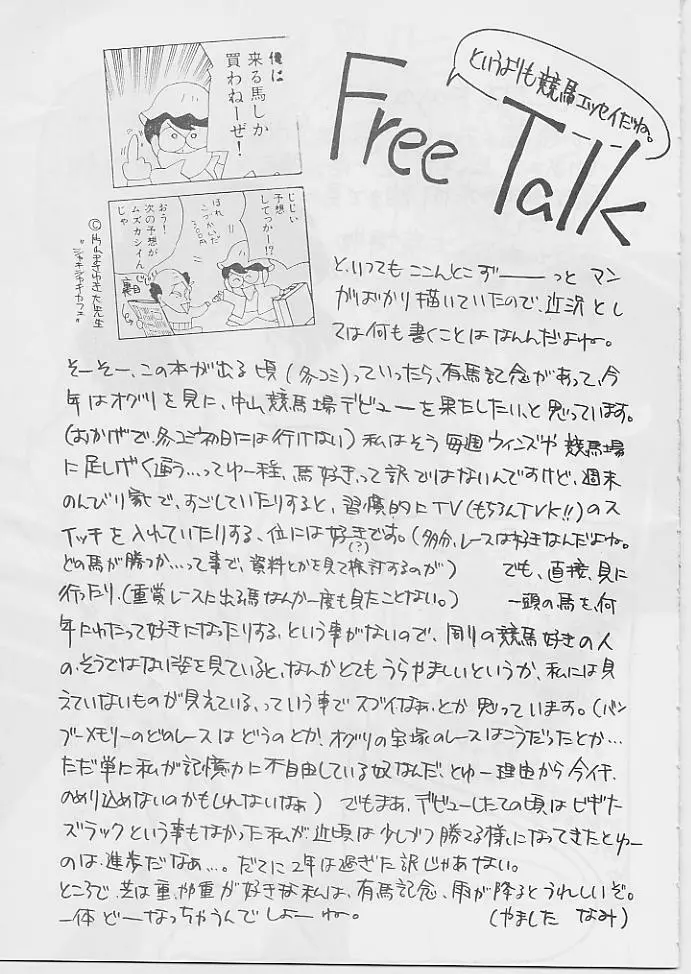 Free Talk
というよりも競馬エッセイだね。
俺は
来る馬しか
買わねーぜ!
じじい
予想
してっかー!?
ほれ
こづかいだ
300円
おう!
次の予想が
ムズカシイん
じゃ
裏目
©片山まさゆき大先生
"ジャキジャキカフェ"
と、いっても ここんとこ ずーーっと マン
がばかり描いていたので、近況 とし
ては何も書くことは なんんだよね。
そーそー、この本が出る頃(冬コミ)っていったら、有馬記念があって、今
年はオグリを見に、中山競馬場デビューを果たしたい、と思っています。
(おかげで、冬コミ初日には行けない) 私はそう 毎週ウィンズや 競馬場
に足しげく通う…ってゆー程、馬好きって訳ではないんですけど、週末
のんびり家で、すごしていたりすると、習慣的にTV(もちろんTVK!!)のス
イッチを入れていたりする、位には好き(?)です。(多分、レースは好きなんだよね。
どの馬が勝つか…って事で、資料とかを見て検討するのが) でも、直接、見に
行ったり、(重賞レースに出る馬なんか一度も見たことない。) 一頭の馬を、何
年にわたって好きになったりする、という事がないので、周りの競馬好きの人
の、そうではない姿を見ていると、なんかとても うらやましいというか、私には見
えていないものが見えている、っていう事でスゴイなぁ、とか 思っています。(バン
ブーメモリーのどのレースは どうのとか、オグリの宝塚のレースはこうだったとか…
ただ単に私が記憶力に不自由している奴なんだ、とゆー理由から今イチ、
のめり込めないのかもしれないなぁ) でもまぁ、デビューしたての頃は ビギナ
ーズラックという事もなかった私が近頃は少しづつ勝てる様になってきたとゆー
のは、進歩だなぁ…。だてに2年は過ぎた訳じゃあない。
ところで、芝は重、やや重が好きな私は、有馬記念、雨が降るとうれしいぞ。
一体 どーなっちゃうんでしょーね。 (やました なみ)